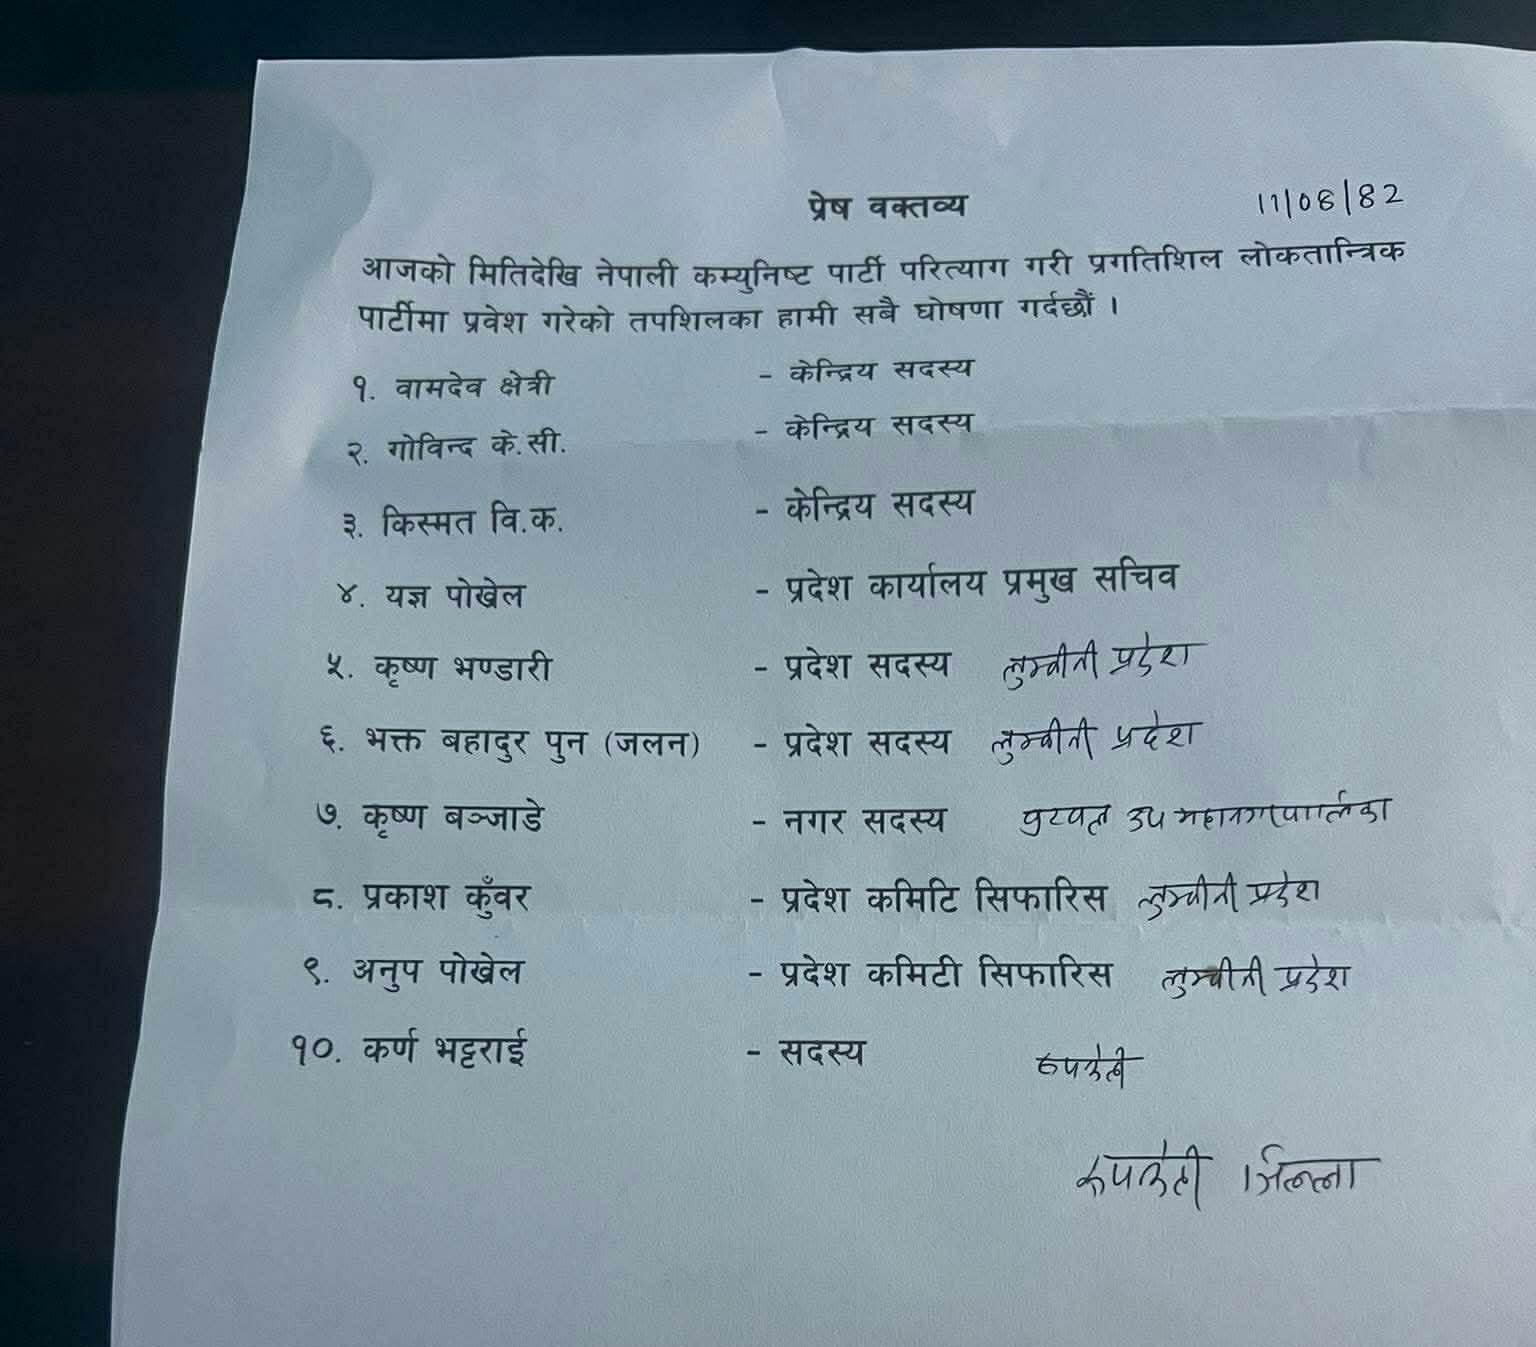 प्रेष वक्तव्य 11/08/82
आजको मितिदेखि नेपाली कम्युनिष्ट पार्टी परित्याग गरी प्रगतिशिल लोकतान्त्रिक
पार्टीमा प्रवेश गरेको तपशिलका हामी सबै घोषणा गर्दछौं ।
१. वामदेव क्षेत्री - केन्द्रिय सदस्य
२. गोविन्द के.सी. - केन्द्रिय सदस्य
३. किस्मत वि.क. - केन्द्रिय सदस्य
४. यज्ञ पोखेल - प्रदेश कार्यालय प्रमुख सचिव
५. कृष्ण भण्डारी - प्रदेश सदस्य लुम्बीनी प्रदेश
६. भक्त बहादुर पुन (जलन) - प्रदेश सदस्य लुम्बीनी प्रदेश
७. कृष्ण बञ्जाडे - नगर सदस्य उप महानगरपालिका
८. प्रकाश कुँवर - प्रदेश कमिटि सिफारिस लुम्बीनी प्रदेश
९. अनुप पोखेल - प्रदेश कमिटी सिफारिस लुम्बीनी प्रदेश
१०. कर्ण भट्टराई - सदस्य
जिल्ला